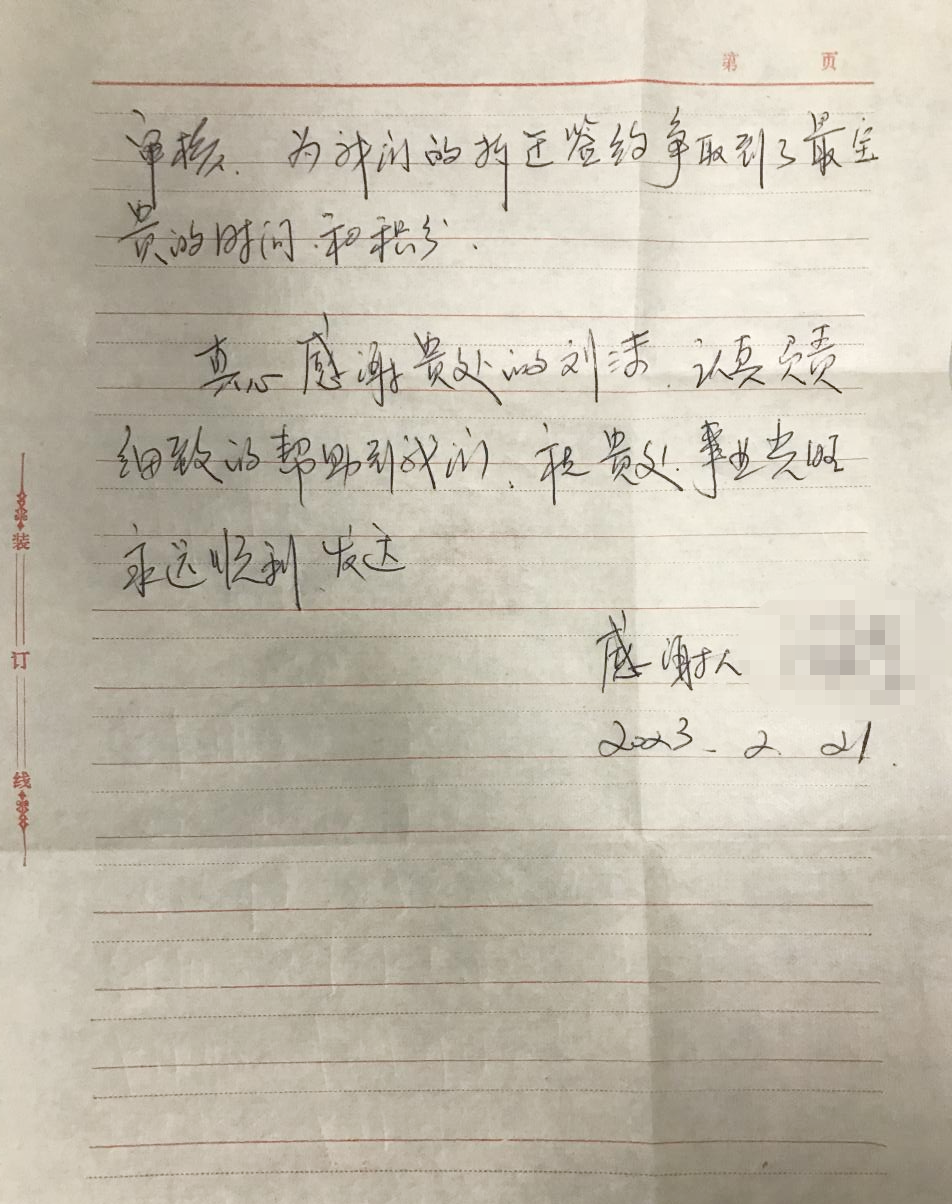 第 页
审核、为我们的拆迁签约争取到了最宝
贵的时间、和积分.
真心感谢贵处的刘沫、认真负责
细致的帮助到我们、祝贵处、事业兴旺
永远顺利、发达
感谢人
2023. 2. 21.
装
订
线